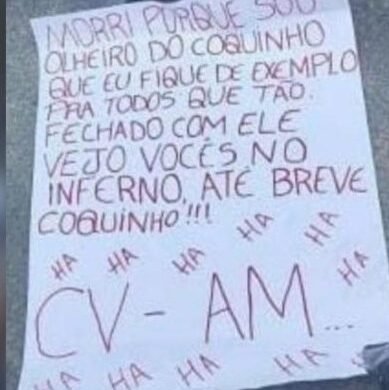 MORRI PORQUE SOU
OLHEIRO DO COQUINHO
QUE EU FIQUE DE EXEMPLO
PRA TODOS QUE TÃO.
FECHADO COM ELE
VEJO VOCÊS NO
INFERNO, ATÉ BREVE
COQUINHO!!!
HA HA HA HA HA HA
CV - AM...
HA HA HA HA HA